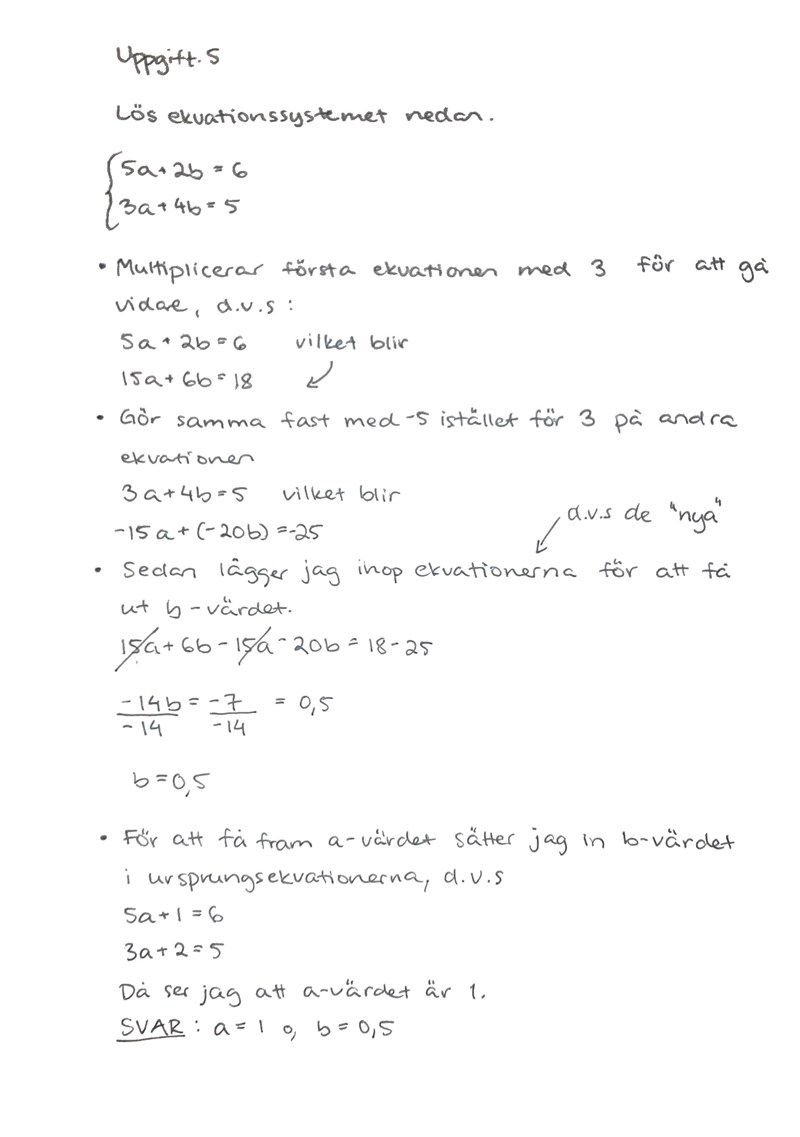 Uppgift. 5
Lös ekvationssystemet nedan.
5a + 2b = 6
3a + 4b = 5
• Multiplicerar första ekvationen med 3 för att gå
vidae, d.v.s :
5a + 2b = 6 vilket blir
15a + 6b = 18
• Gör samma fast med -5 istället för 3 på andra
ekvationen
3a + 4b = 5 vilket blir
-15a + (-20b) = -25
d.v.s de "nya"
• Sedan lägger jag ihop ekvationerna för att få
ut b-värdet.
15a + 6b - 15a - 20b = 18 - 25
-14b = -7 = 0,5
-14 -14
b = 0,5
• För att få fram a-värdet sätter jag in b-värdet
i ursprungsekvationerna, d.v.s
5a + 1 = 6
3a + 2 = 5
Då ser jag att a-värdet är 1.
SVAR : a = 1 o, b = 0,5